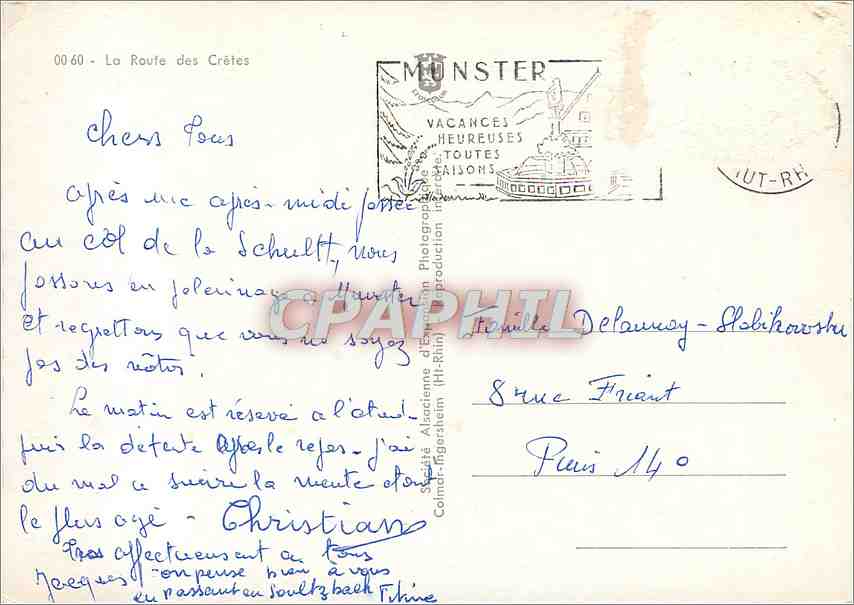 0060 - La Route des Crêtes
MUNSTER
VACANCES
HEUREUSES
TOUTES
SAISONS
HUT-RH
Chers Tous
après une après-midi passée
au col de la Schult, nous
passons en pelerinage a Munster
et regrettons que vous ne soyez
pas des nôtres.
Le matin est réservé a l'étude
puis la détente après le repas - j'ai
du mal a suivre la meute étant
le plus agé - Christian
Tres affectueusement a tous
Jacques - on pense bien à vous
en passant en Soultzbach
Société Alsacienne d'Expansion Photographique
Colmar-Ingersheim (Ht-Rhin) Reproduction interdite
CPAPHIL
Famille Delaunay - Slobikowsky
8 rue Friant
Paris 14e